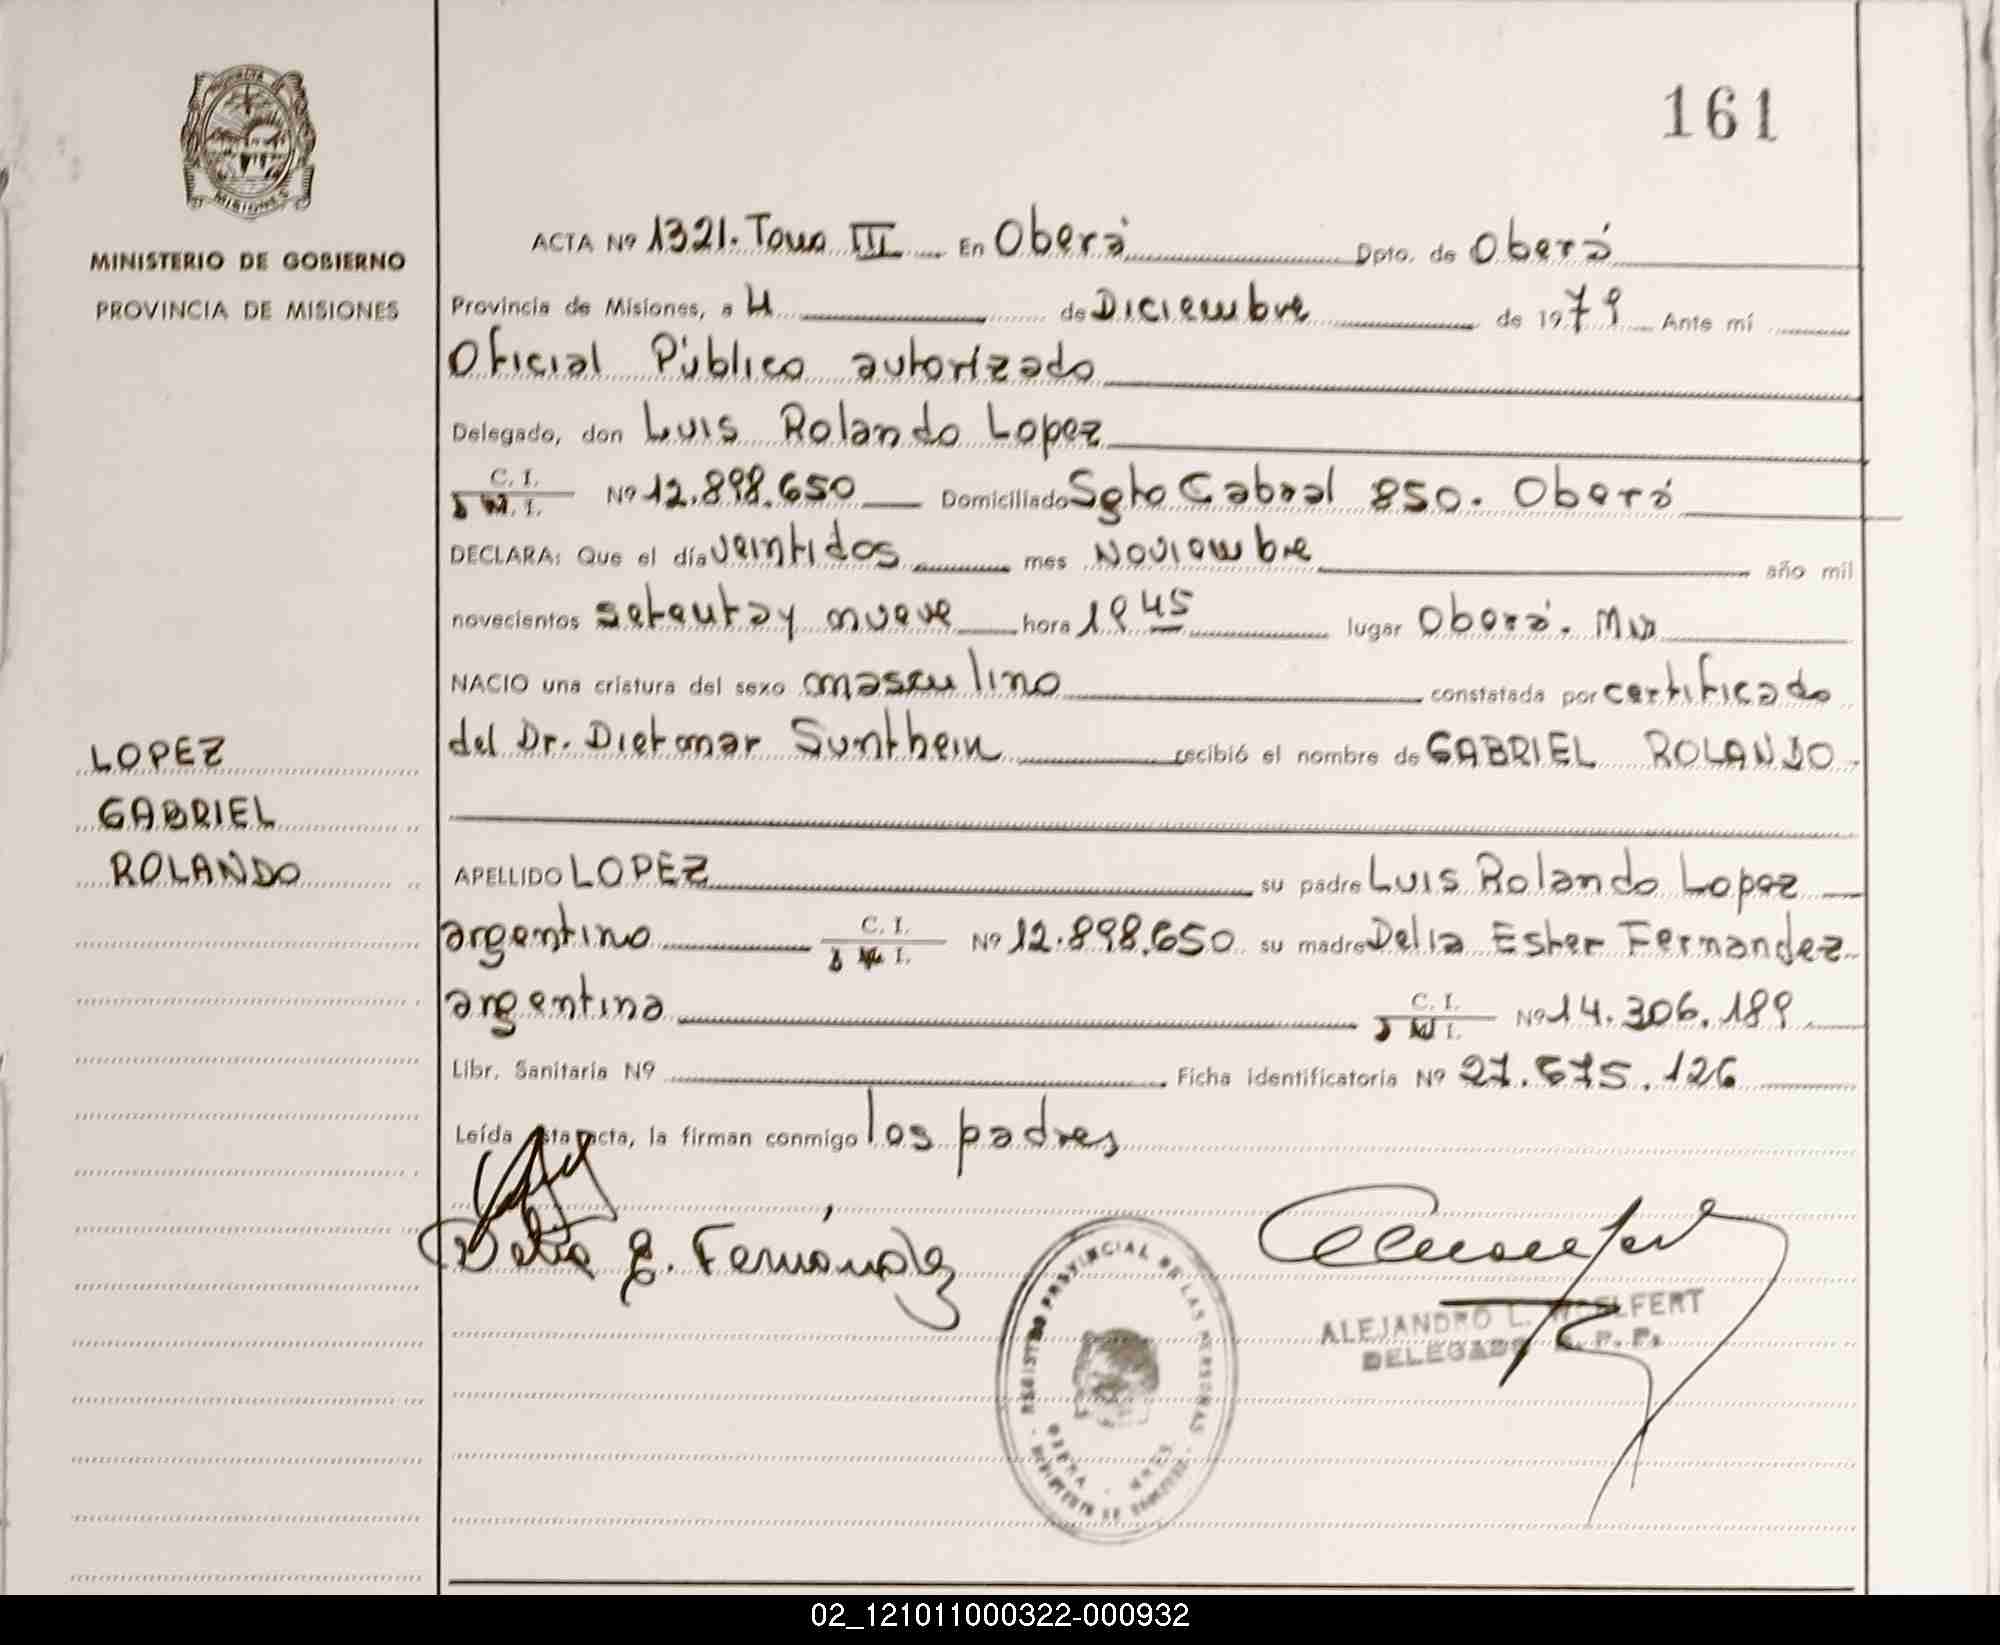 161
MINISTERIO DE GOBIERNO
PROVINCIA DE MISIONES
MISIONES
ACTA Nº 1321. Tomo III En Oberá Dpto. de Oberá
Provincia de Misiones, a 4 de Diciembre de 1979 Ante mí
Oficial Público autorizado
Delegado, don Luis Rolando Lopez
C. I.
Nº 12.898.650 Domiciliado Sgto Cabral 850. Oberá
DECLARA: Que el día veintidos mes Noviembre año mil
novecientos setenta y nueve hora 19 45 lugar Oberá. Mis
NACIO una criatura del sexo masculino constatada por certificado
del Dr. Dietmar Sunthein recibió el nombre de GABRIEL ROLANDO
LOPEZ
GABRIEL
ROLANDO
APELLIDO LOPEZ su padre Luis Rolando Lopez
argentino C. I. Nº 12.898.650 su madre Delia Ester Fernandez
argentina C. I. Nº 14.306.189
Libr. Sanitaria Nº Ficha identificatoria Nº 27.675.126
Leída esta acta, la firman conmigo los padres
Delia E. Fernández
REGISTRO PROVINCIAL DE LAS PERSONAS
OBERA - MNES
ALEJANDRO L. WOELFERT
DELEGADO R. P. P.
02_121011000322-000932